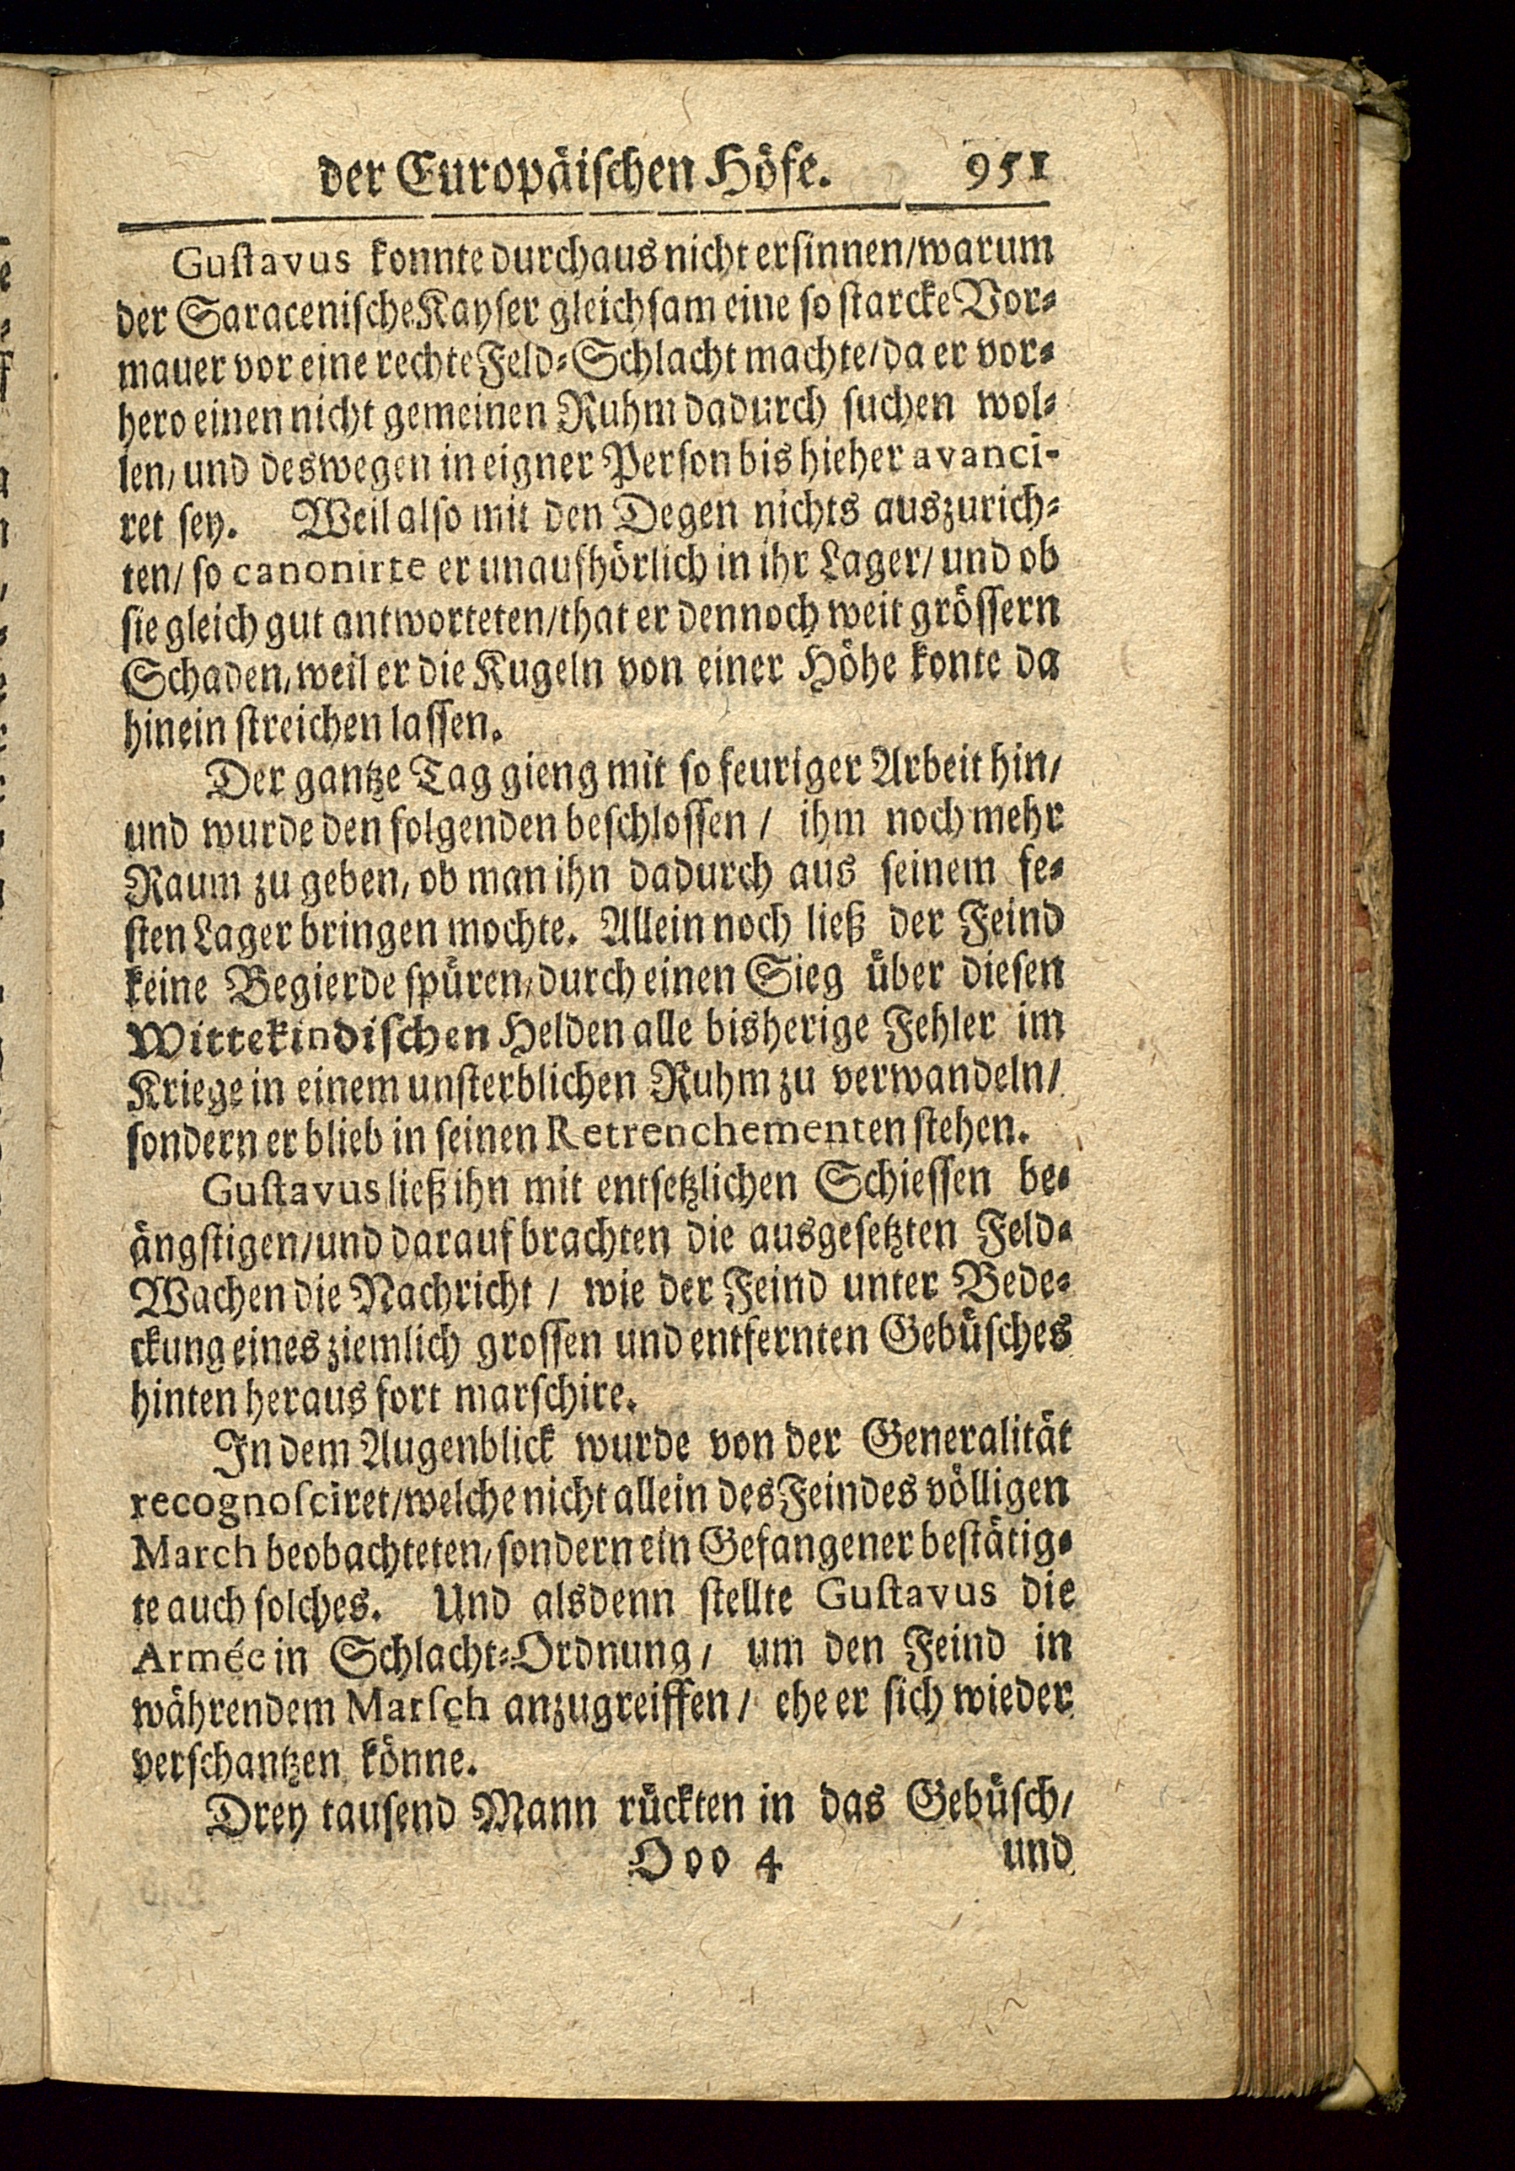 der Europäiſchen Höfe. 951
Guſtavus konnte durchaus nicht erſinnen/warum
der Saraceniſche Kayſer gleichſam eine ſo ſtarcke Vor⸗
mauer vor eine rechte Feld⸗Schlacht machte/da er vor⸗
hero einen nicht gemeinen Ruhm dadurch ſuchen wol⸗
len/ und deswegen in eigner Perſon bis hieher avanci-
ret ſey. Weil alſo mit den Degen nichts auszurich⸗
ten/ ſo canonirte er unaufhörlich in ihr Lager/ und ob
ſie gleich gut antworteten/that er dennoch weit gröſſern
Schaden/weil er die Kugeln von einer Höhe konte da
hinein ſtreichen laſſen.
Der gantze Tag gieng mit ſo feuriger Arbeit hin/
und wurde den folgenden beſchloſſen / ihm noch mehr
Raum zu geben/ ob man ihn dadurch aus ſeinem fe⸗
ſten Lager bringen mochte. Allein noch ließ der Feind
keine Begierde ſpüren/durch einen Sieg über dieſen
Wittekindiſchen Helden alle bisherige Fehler im
Kriege in einem unſterblichen Ruhm zu verwandeln/
ſondern er blieb in ſeinen Retrenchementen ſtehen.
Guſtavus ließ ihn mit entſetzlichen Schieſſen be⸗
ängſtigen/und darauf brachten die ausgeſetzten Feld⸗
Wachen die Nachricht / wie der Feind unter Bede⸗
ckung eines ziemlich groſſen und entfernten Gebüſches
hinten heraus fort marſchire.
In dem Augenblick wurde von der Generalität
recognoſciret/welche nicht allein des Feindes völligen
March beobachteten/ſondern ein Gefangener beſtätig⸗
te auch ſolches. Und alsdenn ſtellte Guſtavus die
Armée in Schlacht⸗Ordnung/ um den Feind in
währendem Marſch anzugreiffen/ ehe er ſich wieder
verſchantzen könne.
Drey tauſend Mann rückten in das Gebüſch/
Ooo 4 und